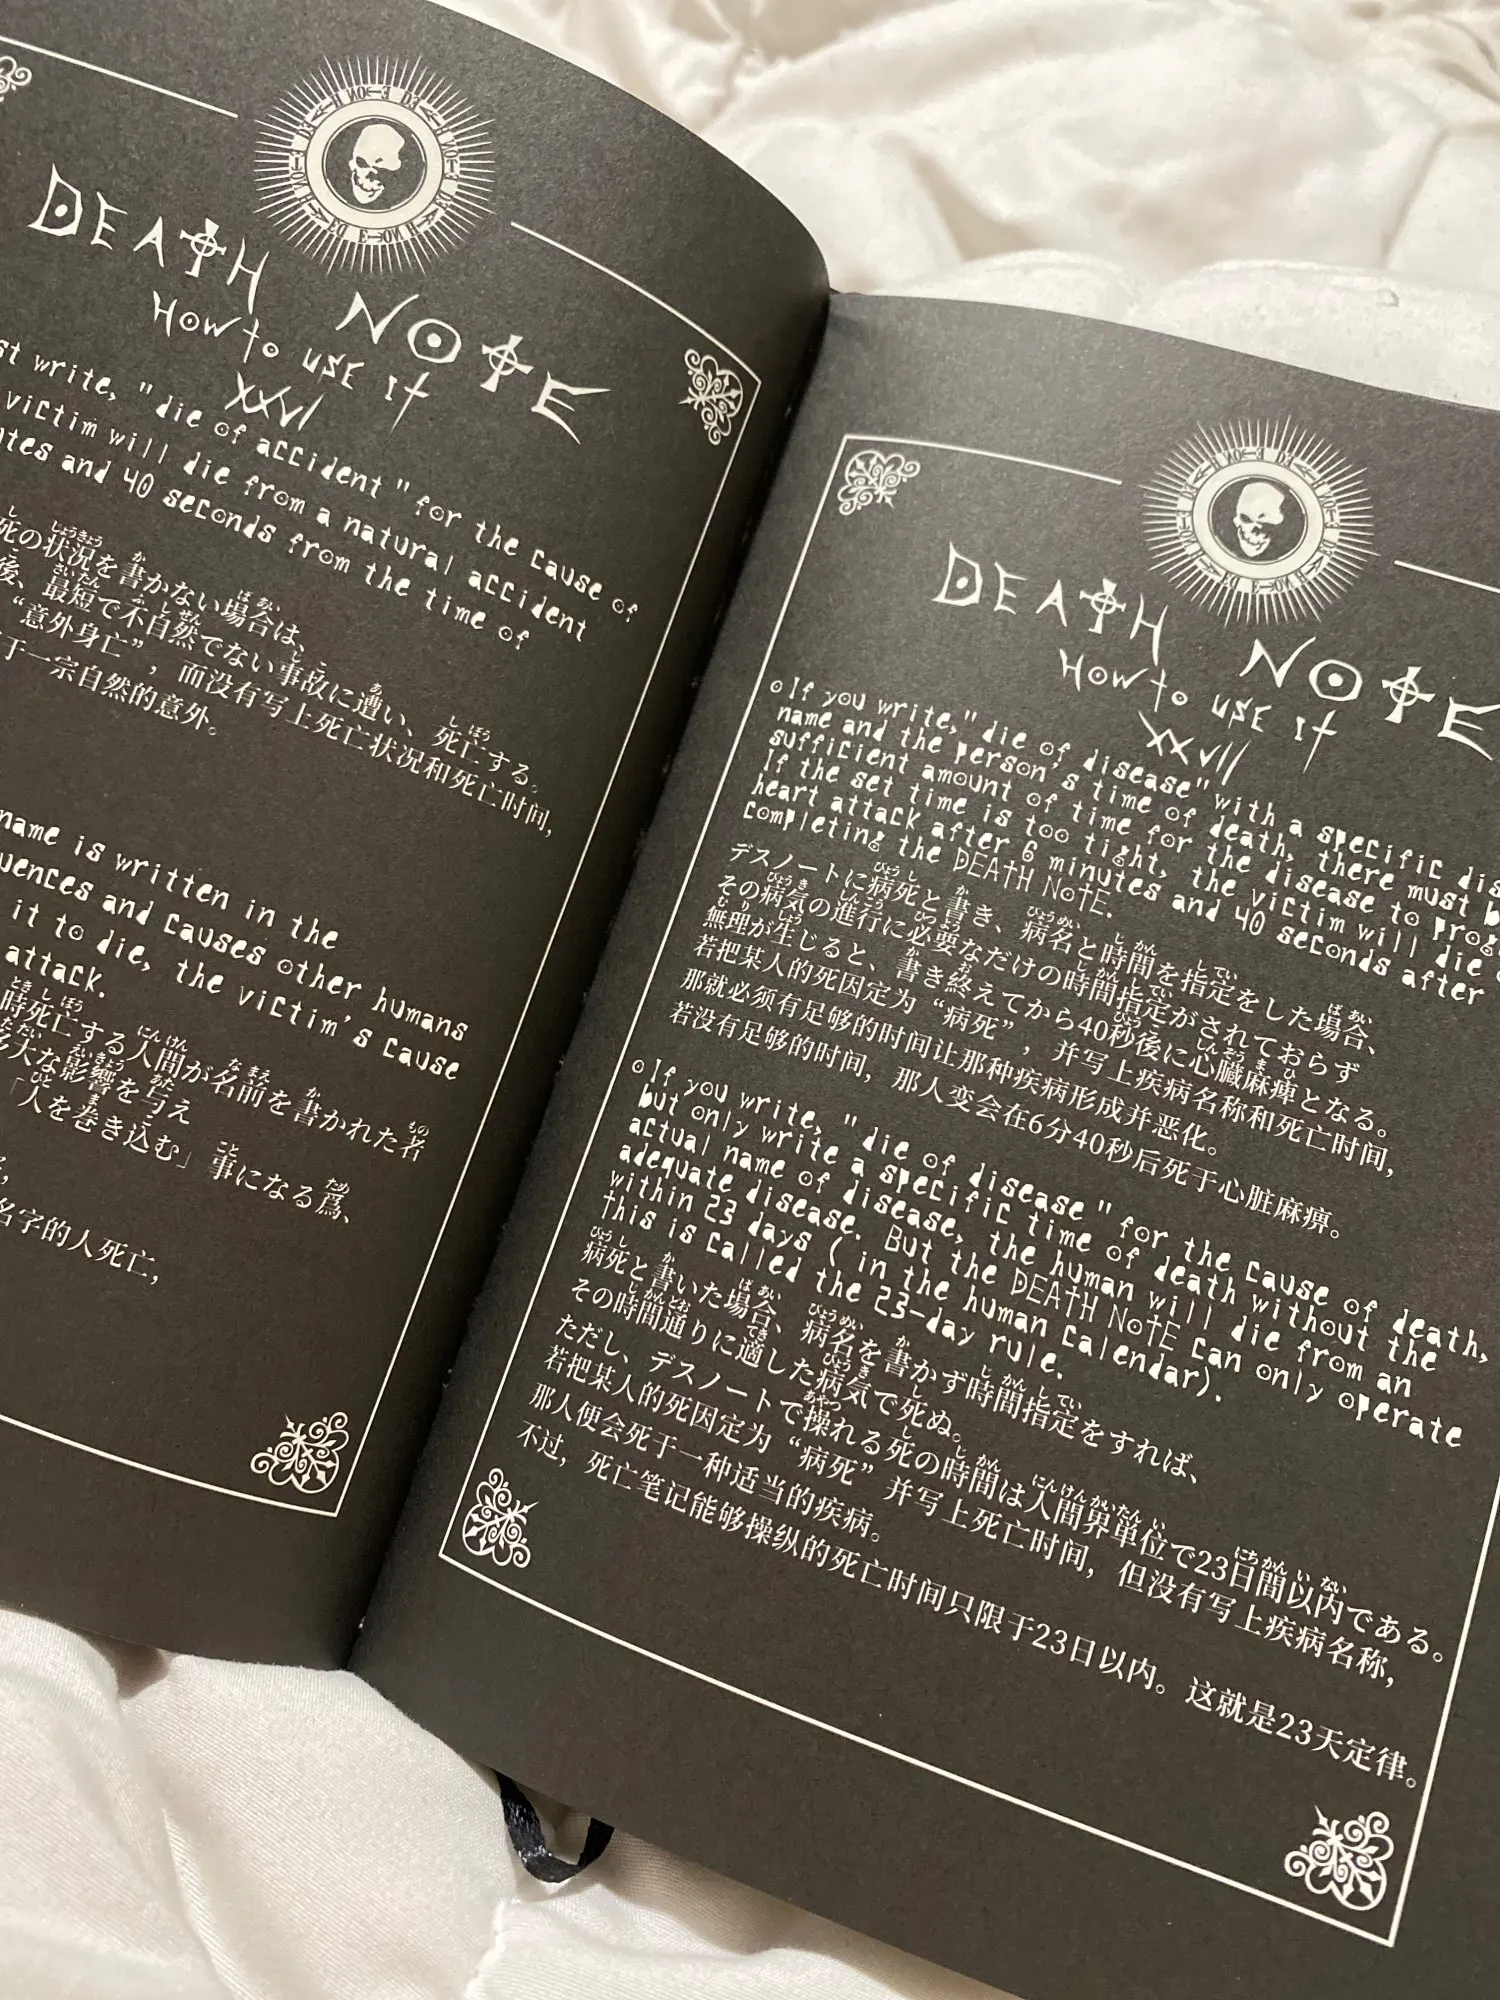 DEATH NOTE
How to use it
XXVI
st write, "die of accident" for the cause of
victim will die from a natural accident
utes and 40 seconds from the time of
死の状況を書かない場合は、
後、最短で不自然でない事故に遭い、死亡する。
“意外身亡”，而没有写上死亡状况和死亡时间，
于一宗自然的意外。
name is written in the
uences and causes other humans
it to die, the victim's cause
attack.
時死亡する人間が名前を書かれた者
多大な影響を与え
「人を巻き込む」事になる爲、
名字的人死亡，
DEATH NOTE
How to use it
XXVII
If you write, "die of disease" with a specific dis
name and the person's time of death, there must b
sufficient amount of time for the disease to prog
If the set time is too tight, the victim will die o
heart attack after 6 minutes and 40 seconds after
completing the DEATH NOTE.
デスノートに病死と書き、病名と時間を指定をした場合、
その病気の進行に必要なだけの時間指定がされておらず
無理が生じると、書き終えてから40秒後に心臓麻痺となる。
若把某人的死因定为“病死”，并写上疾病名称和死亡时间，
那就必须有足够的时间让那种疾病形成并恶化。
若没有足够的时间，那人变会在6分40秒后死于心脏麻痹。
If you write, "die of disease" for the cause of death,
but only write a specific time of death without the
actual name of disease, the human will die from an
adequate disease. But the DEATH NOTE can only operate
within 23 days ( in the human calendar).
This is called the 23-day rule.
病死と書いた場合、病名を書かず時間指定をすれば、
その時間通りに適した病気で死ぬ。
ただし、デスノートで操れる死の時間は人間界単位で23日間以内である。
若把某人的死因定为“病死”并写上死亡时间，但没有写上疾病名称，
那人便会死于一种适当的疾病。
不过，死亡笔记能够操纵的死亡时间只限于23日以内。这就是23天定律。